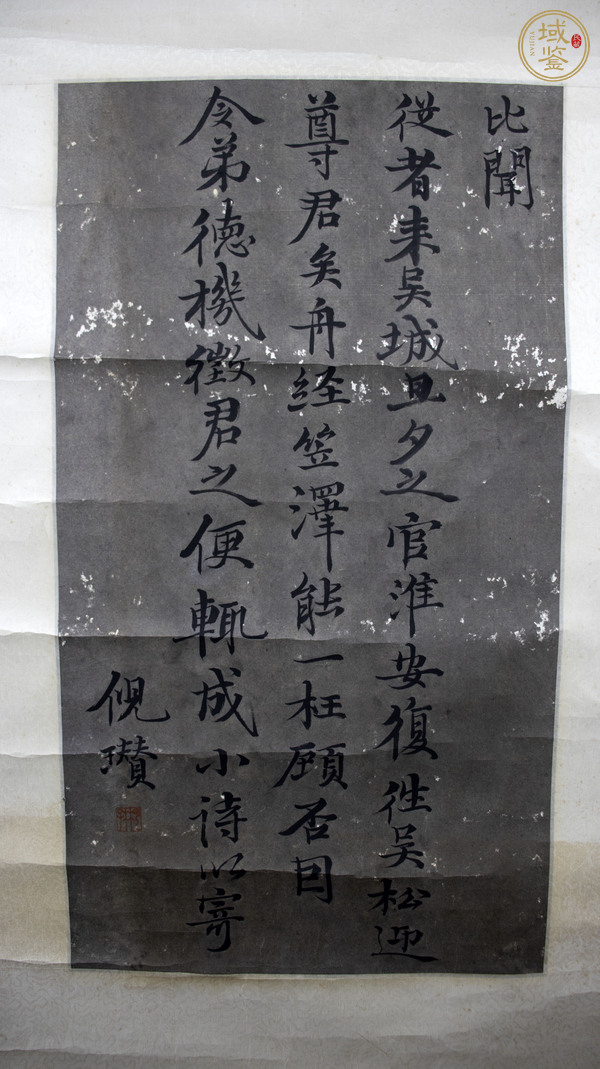 比聞
從者来吴城旦夕之官淮安復徃吴松迎
尊君矣舟経笠澤能一枉顧否因
令弟德機徵君之便輙成小诗以寄
倪瓚
域鉴
YUJIAN